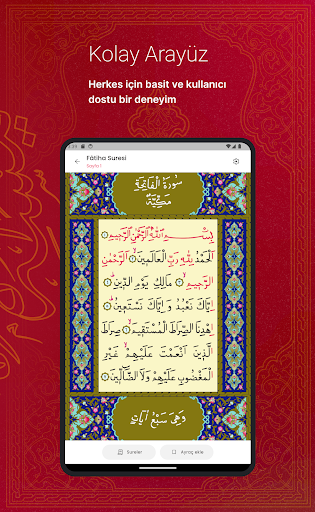 Kolay Arayüz
Herkes için basit ve kullanıcı
dostu bir deneyim
Fâtiha Suresi
Sayfa:1
سُورَةُ الْفَاتِحَةِ
مَكِّيَّةٌ
بِسْمِ اللّٰهِ الرَّحْمٰنِ الرَّحِيمِ
اَلْحَمْدُ لِلّٰهِ رَبِّ الْعَالَمِينَ الرَّحْمٰنِ
الرَّحِيمِ مَالِكِ يَوْمِ الدِّينِ
اِيَّاكَ نَعْبُدُ وَ اِيَّاكَ نَسْتَعِينُ
اِهْدِنَا الصِّرَاطَ الْمُسْتَقِيمَ صِرَاطَ
الَّذِينَ اَنْعَمْتَ عَلَيْهِمْ غَيْرِ
الْمَغْضُوبِ عَلَيْهِمْ وَلَا الضَّالِّينَ
وَهِيَ سَبْعُ اٰيَاتٍ
Sureler
Ayraç ekle